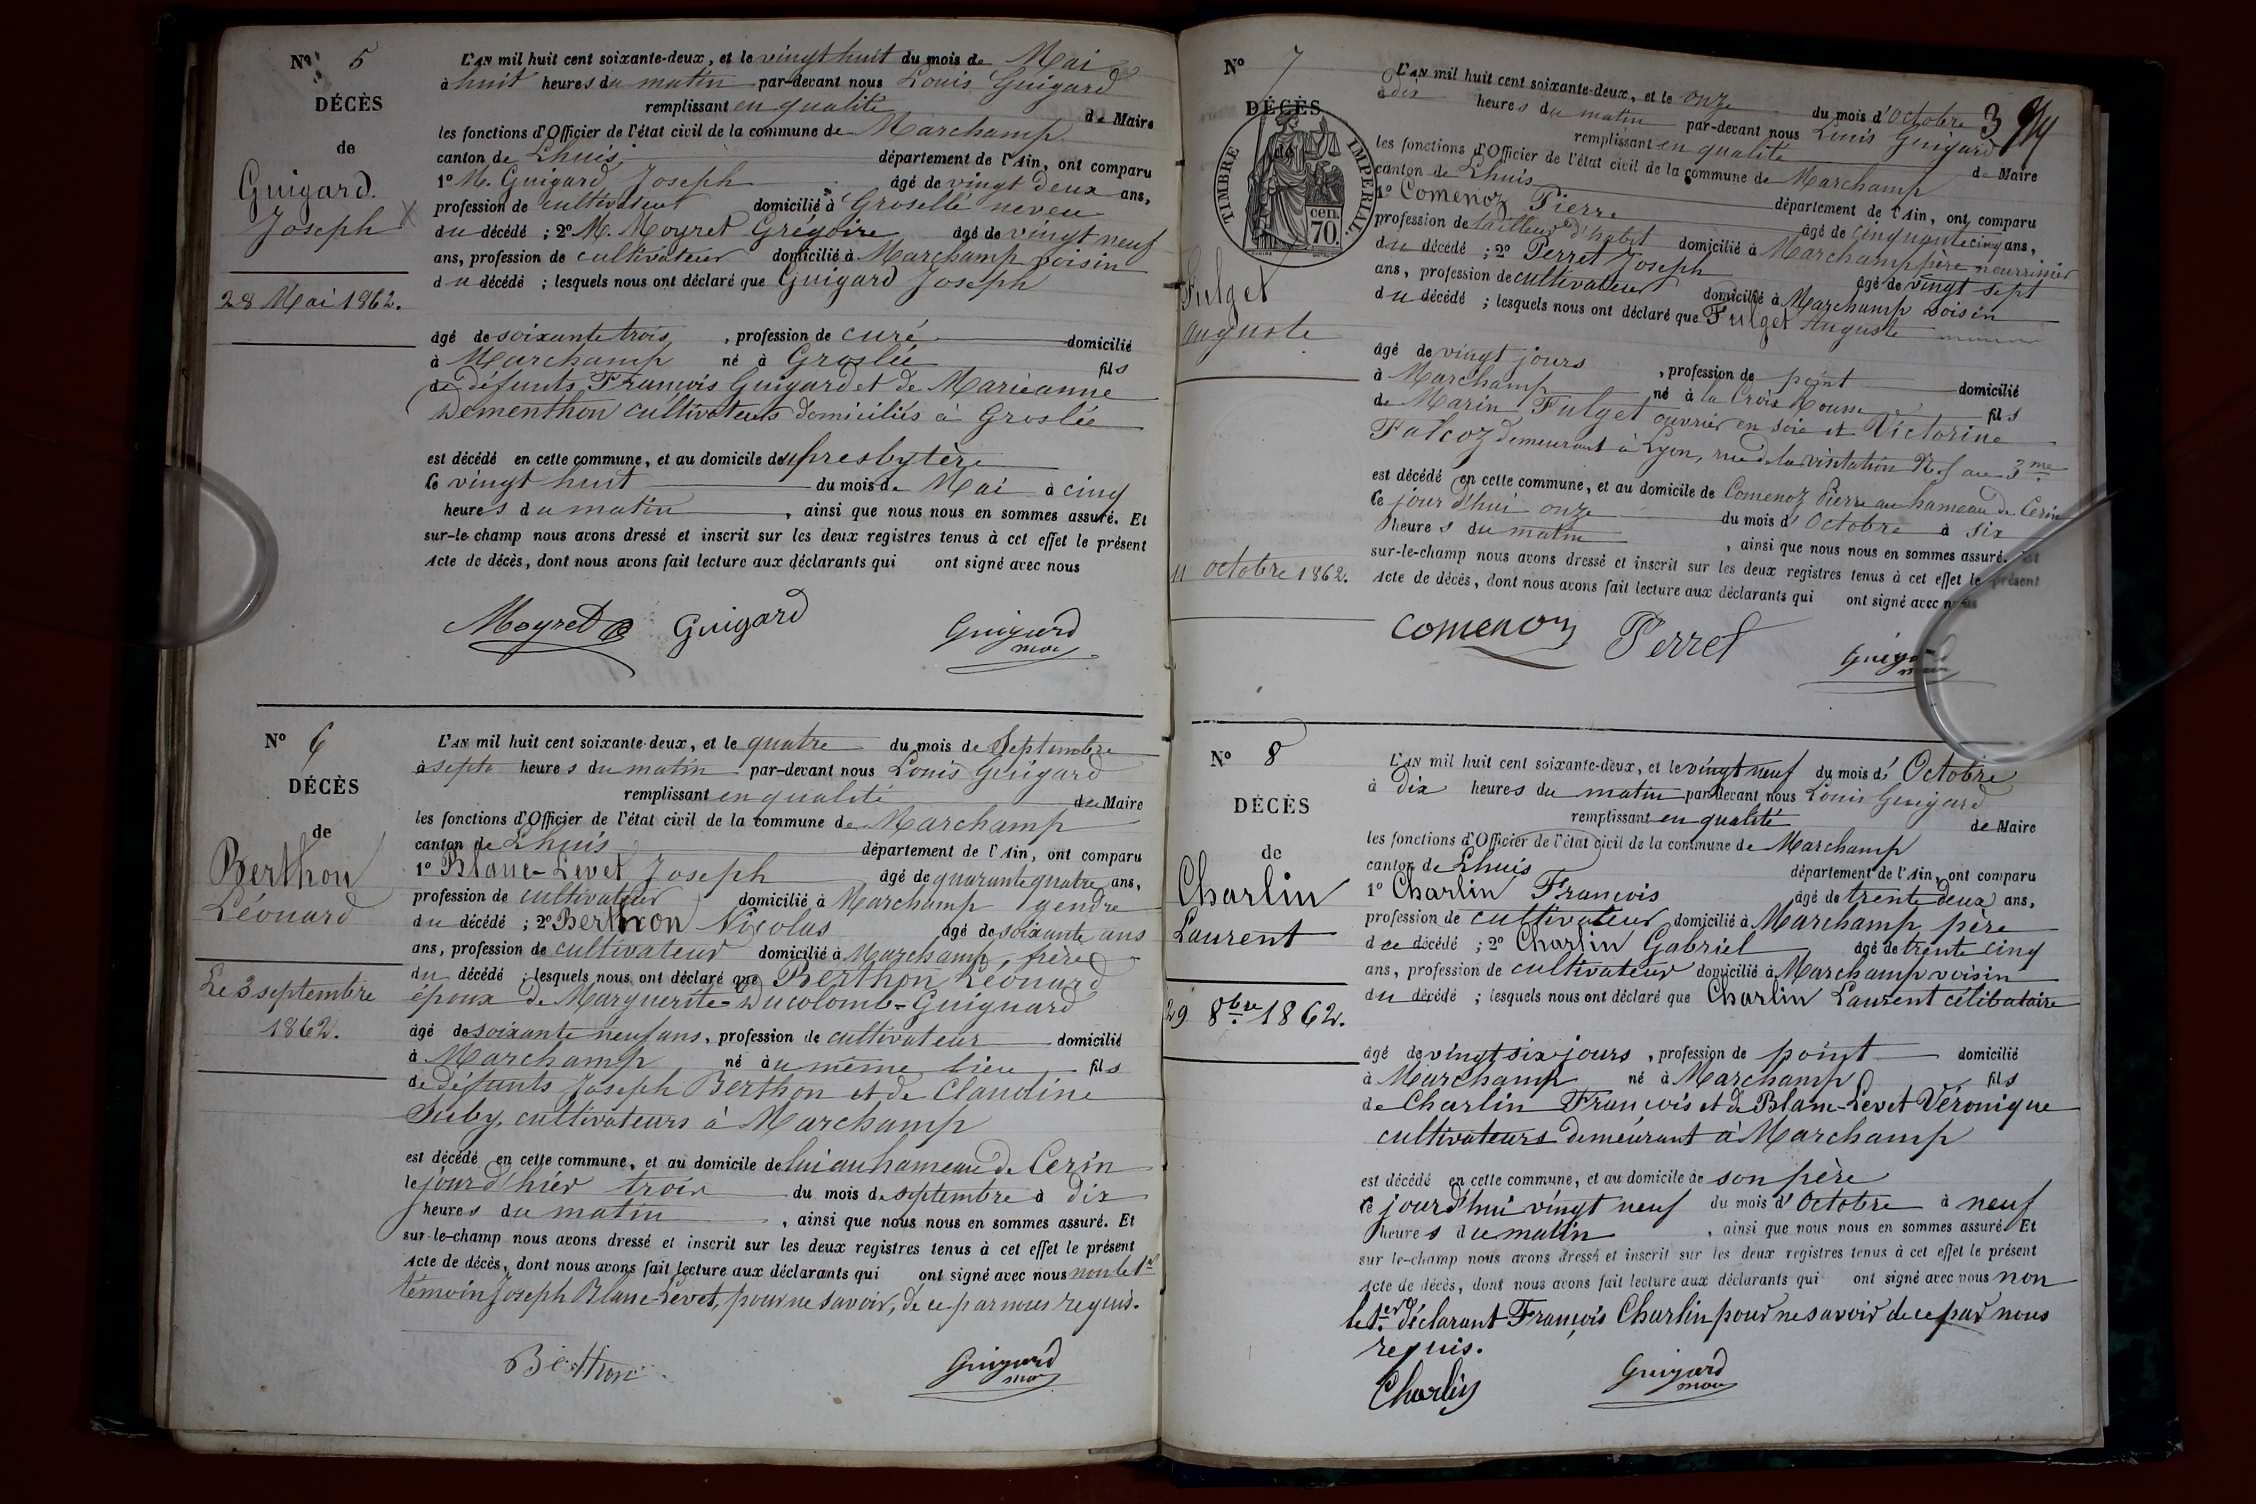 N° 5
DÉCÈS
de
Guigard
Joseph
28 Mai 1862.
L'AN mil huit cent soixante-deux, et le vingt huit du mois de Mai
à huit heures du matin par-devant nous Louis Guigard
remplissant en qualité de Maire
les fonctions d'Officier de l'état civil de la commune de Marchamp
canton de Lhuis département de l'Ain, ont comparu
1° M. Guigard Joseph âgé de vingt deux ans,
profession de cultivateur domicilié à Groselle neveu
du décédé ; 2° M. Moyret Grégoire âgé de vingt neuf
ans, profession de cultivateur domicilié à Marchamp voisin
du décédé ; lesquels nous ont déclaré que Guigard Joseph
âgé de soixante trois, profession de curé domicilié
à Marchamp né à Groslée fils
de défunts François Guigard et de Marieanne
Dementhon cultivateurs domiciliés à Groslée
est décédé en cette commune, et au domicile du presbytère
le vingt huit du mois de Mai à cinq
heures du matin, ainsi que nous nous en sommes assuré. Et
sur-le-champ nous avons dressé et inscrit sur les deux registres tenus à cet effet le présent
Acte de décès, dont nous avons fait lecture aux déclarants qui ont signé avec nous
Moyret G Guigard Guigard
N° 6
DÉCÈS
de
Berthon
Léonard
Le 3 septembre
1862.
L'AN mil huit cent soixante-deux, et le quatre du mois de Septembre
à sept heures du matin par-devant nous Louis Guigard
remplissant en qualité de Maire
les fonctions d'Officier de l'état civil de la commune de Marchamp
canton de Lhuis département de l'Ain, ont comparu
1° Blanc-Levet Joseph âgé de quarante quatre ans,
profession de cultivateur domicilié à Marchamp gendre
du décédé ; 2° Berthon Nicolas âgé de soixante ans
ans, profession de cultivateur domicilié à Marchamp, frère
du décédé ; lesquels nous ont déclaré que Berthon Léonard
époux de Marguerite Ducolomb-Guignard
âgé de soixante neuf ans, profession de cultivateur domicilié
à Marchamp né au même lieu fils
de défunts Joseph Berthon et de Claudine
cultivateurs à Marchamp
est décédé en cette commune, et au domicile de lui au hameau de Cerin
le jour d'hier trois du mois de septembre à dix
heures du matin, ainsi que nous nous en sommes assuré. Et
sur-le-champ nous avons dressé et inscrit sur les deux registres tenus à cet effet le présent
Acte de décès, dont nous avons fait lecture aux déclarants qui ont signé avec nous non le 1er
témoin Joseph Blanc-Levet, pour ne savoir, de ce par nous requis.
Berthon Guigard
N° 7
DÉCÈS
de
TIMBRE IMPÉRIAL
cen.
70.
Fulget
Auguste
11 octobre 1862.
L'AN mil huit cent soixante-deux, et le onze du mois d'octobre 3
à dix heures du matin par-devant nous Louis Guigard
remplissant en qualité de Maire
les fonctions d'Officier de l'état civil de la commune de Marchamp
canton de Lhuis département de l'Ain, ont comparu
1° Comenoz Pierre âgé de cinquante cinq ans,
profession de tailleur d'habit domicilié à Marchamp père nourricier
du décédé ; 2° Perret Joseph âgé de vingt sept
ans, profession de cultivateur domicilié à Marchamp voisin
du décédé ; lesquels nous ont déclaré que Fulget Auguste
âgé de vingt jours, profession de point domicilié
à Marchamp né à la Croix Rousse fils
de Marin Fulget ouvrier en soie et Victorine
Falcoz demeurant à Lyon, rue de la visitation au 3me
est décédé en cette commune, et au domicile de Comenoz Pierre au hameau de Cerin
ce jour d'hui onze du mois d'Octobre à six
heures du matin, ainsi que nous nous en sommes assuré. Et
sur-le-champ nous avons dressé et inscrit sur les deux registres tenus à cet effet le présent
Acte de décès, dont nous avons fait lecture aux déclarants qui ont signé avec nous
Comenoz Perret Guigard
N° 8
DÉCÈS
de
Charlin
Laurent
29 8bre 1862.
L'AN mil huit cent soixante-deux, et le vingt neuf du mois d'Octobre
à dix heures du matin par-devant nous Louis Guigard
remplissant en qualité de Maire
les fonctions d'Officier de l'état civil de la commune de Marchamp
canton de Lhuis département de l'Ain, ont comparu
1° Charlin François âgé de trente deux ans,
profession de cultivateur domicilié à Marchamp père
du décédé ; 2° Charlin Gabriel âgé de trente cinq
ans, profession de cultivateur domicilié à Marchamp voisin
du décédé ; lesquels nous ont déclaré que Charlin Laurent célibataire
âgé de vingt six jours, profession de point domicilié
à Marchamp né à Marchamp fils
de Charlin François et de Blanc-Levet Véronique
cultivateurs demeurant à Marchamp
est décédé en cette commune, et au domicile de son père
ce jourd'hui vingt neuf du mois d'Octobre à neuf
heures du matin, ainsi que nous nous en sommes assuré. Et
sur le-champ nous avons dressé et inscrit sur les deux registres tenus à cet effet le présent
Acte de décès, dont nous avons fait lecture aux déclarants qui ont signé avec nous non
le 1er déclarant François Charlin pour ne savoir de ce par nous
requis.
Charlin Guigard